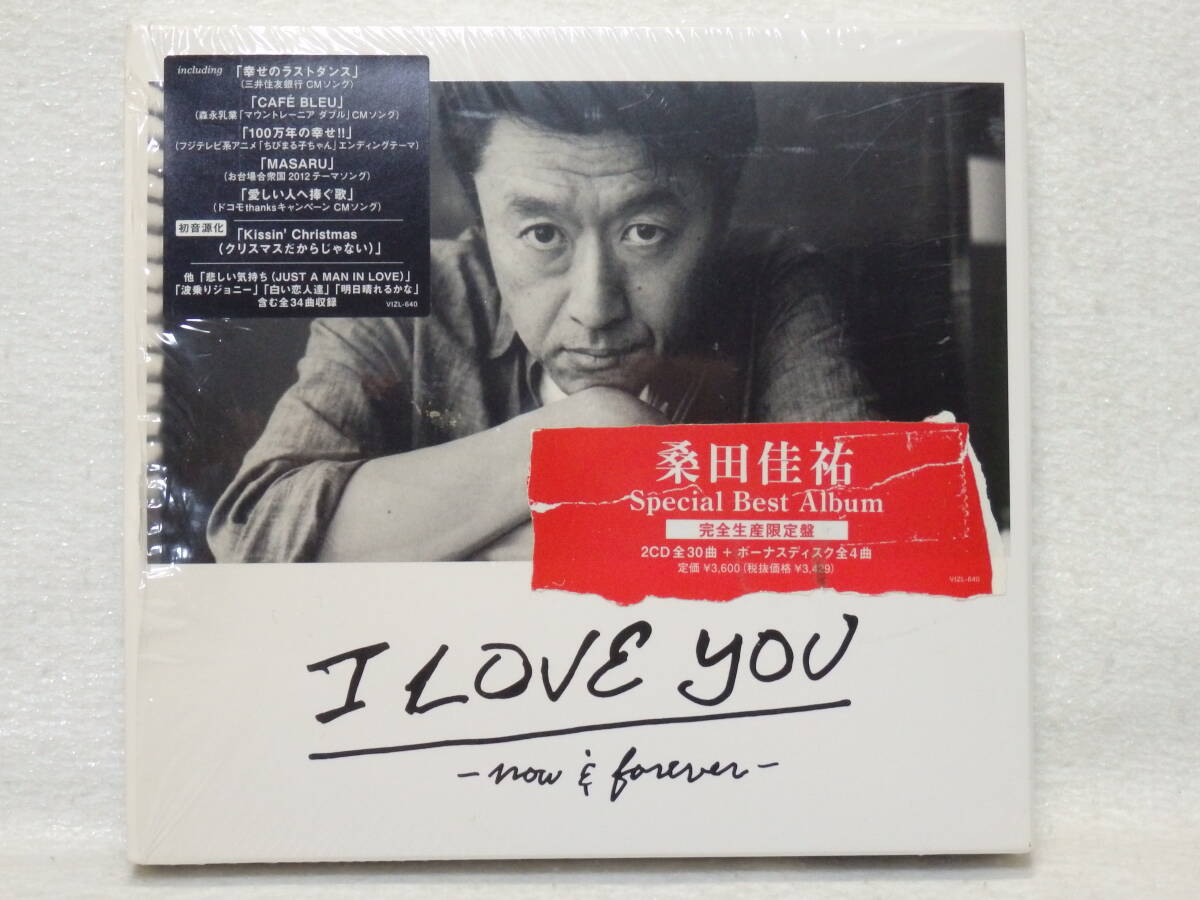 including 「幸せのラストダンス」
(三井住友銀行 CMソング)
「CAFÉ BLEU」
(森永乳業「マウントレーニア ダブル」CMソング)
「100万年の幸せ!!」
(フジテレビ系アニメ「ちびまる子ちゃん」エンディングテーマ)
「MASARU」
(お台場合衆国2012テーマソング)
「愛しい人へ捧ぐ歌」
(ドコモthanksキャンペーン CMソング)
初音源化 「Kissin' Christmas
(クリスマスだからじゃない)」
他「悲しい気持ち(JUST A MAN IN LOVE)」
「波乗りジョニー」「白い恋人達」「明日晴れるかな」
含む全34曲収録 VIZL-640
桑田佳祐
Special Best Album
完全生産限定盤
2CD全30曲 + ボーナスディスク全4曲
定価 ¥3,600(税抜価格 ¥3,429)
VIZL-640
I LOVE YOU
- now & forever -